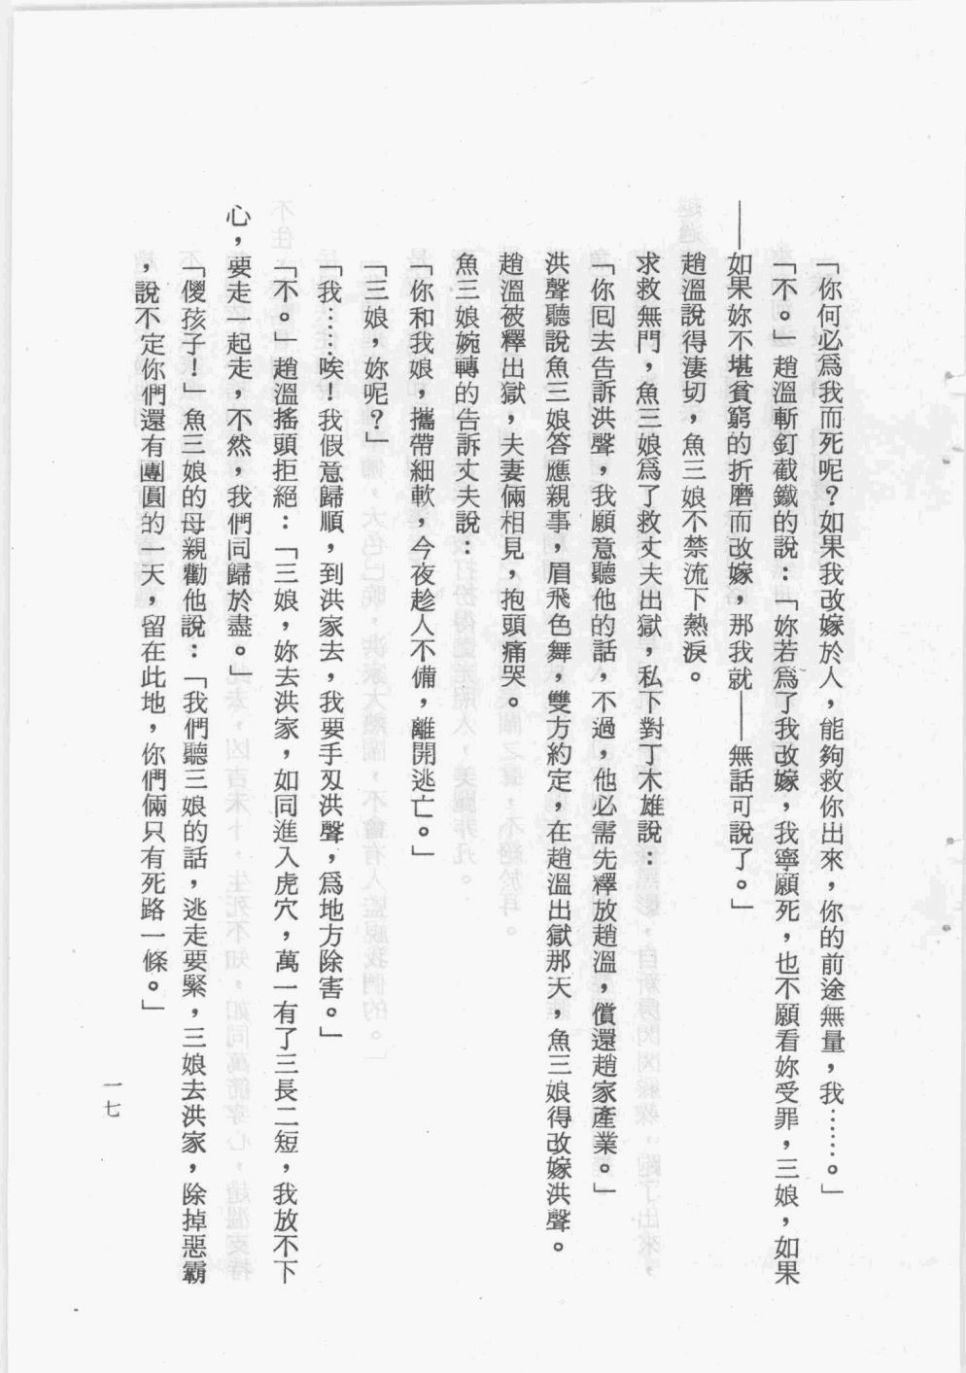 「你何必爲我而死呢？如果我改嫁於人，能夠救你出來，你的前途無量，我……。」
「不。」趙溫斬釘截鐵的說：「妳若爲了我改嫁，我寧願死，也不願看妳受罪，三娘，如果
——如果妳不堪貧窮的折磨而改嫁，那我就——無話可說了。」
趙溫說得淒切，魚三娘不禁流下熱淚。
求救無門，魚三娘爲了救丈夫出獄，私下對丁木雄說：
「你回去告訴洪聲，我願意聽他的話，不過，他必需先釋放趙溫，償還趙家產業。」
洪聲聽說魚三娘答應親事，眉飛色舞，雙方約定，在趙溫出獄那天，魚三娘得改嫁洪聲。
趙溫被釋出獄，夫妻倆相見，抱頭痛哭。
魚三娘婉轉的告訴丈夫說：
「你和我娘，攜帶細軟，今夜趁人不備，離開逃亡。」
「三娘，妳呢？」
「我……唉！我假意歸順，到洪家去，我要手刄洪聲，爲地方除害。」
「不。」趙溫搖頭拒絕：「三娘，妳去洪家，如同進入虎穴，萬一有了三長二短，我放不下
心，要走一起走，不然，我們同歸於盡。」
「儍孩子！」魚三娘的母親勸他說：「我們聽三娘的話，逃走要緊，三娘去洪家，除掉惡霸
，說不定你們還有團圓的一天，留在此地，你們倆只有死路一條。」
一七